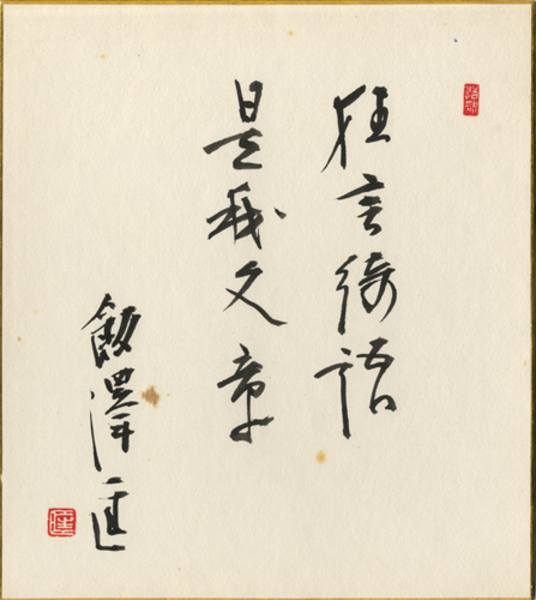 狂言綺語
是我文章
飯澤匡
匡